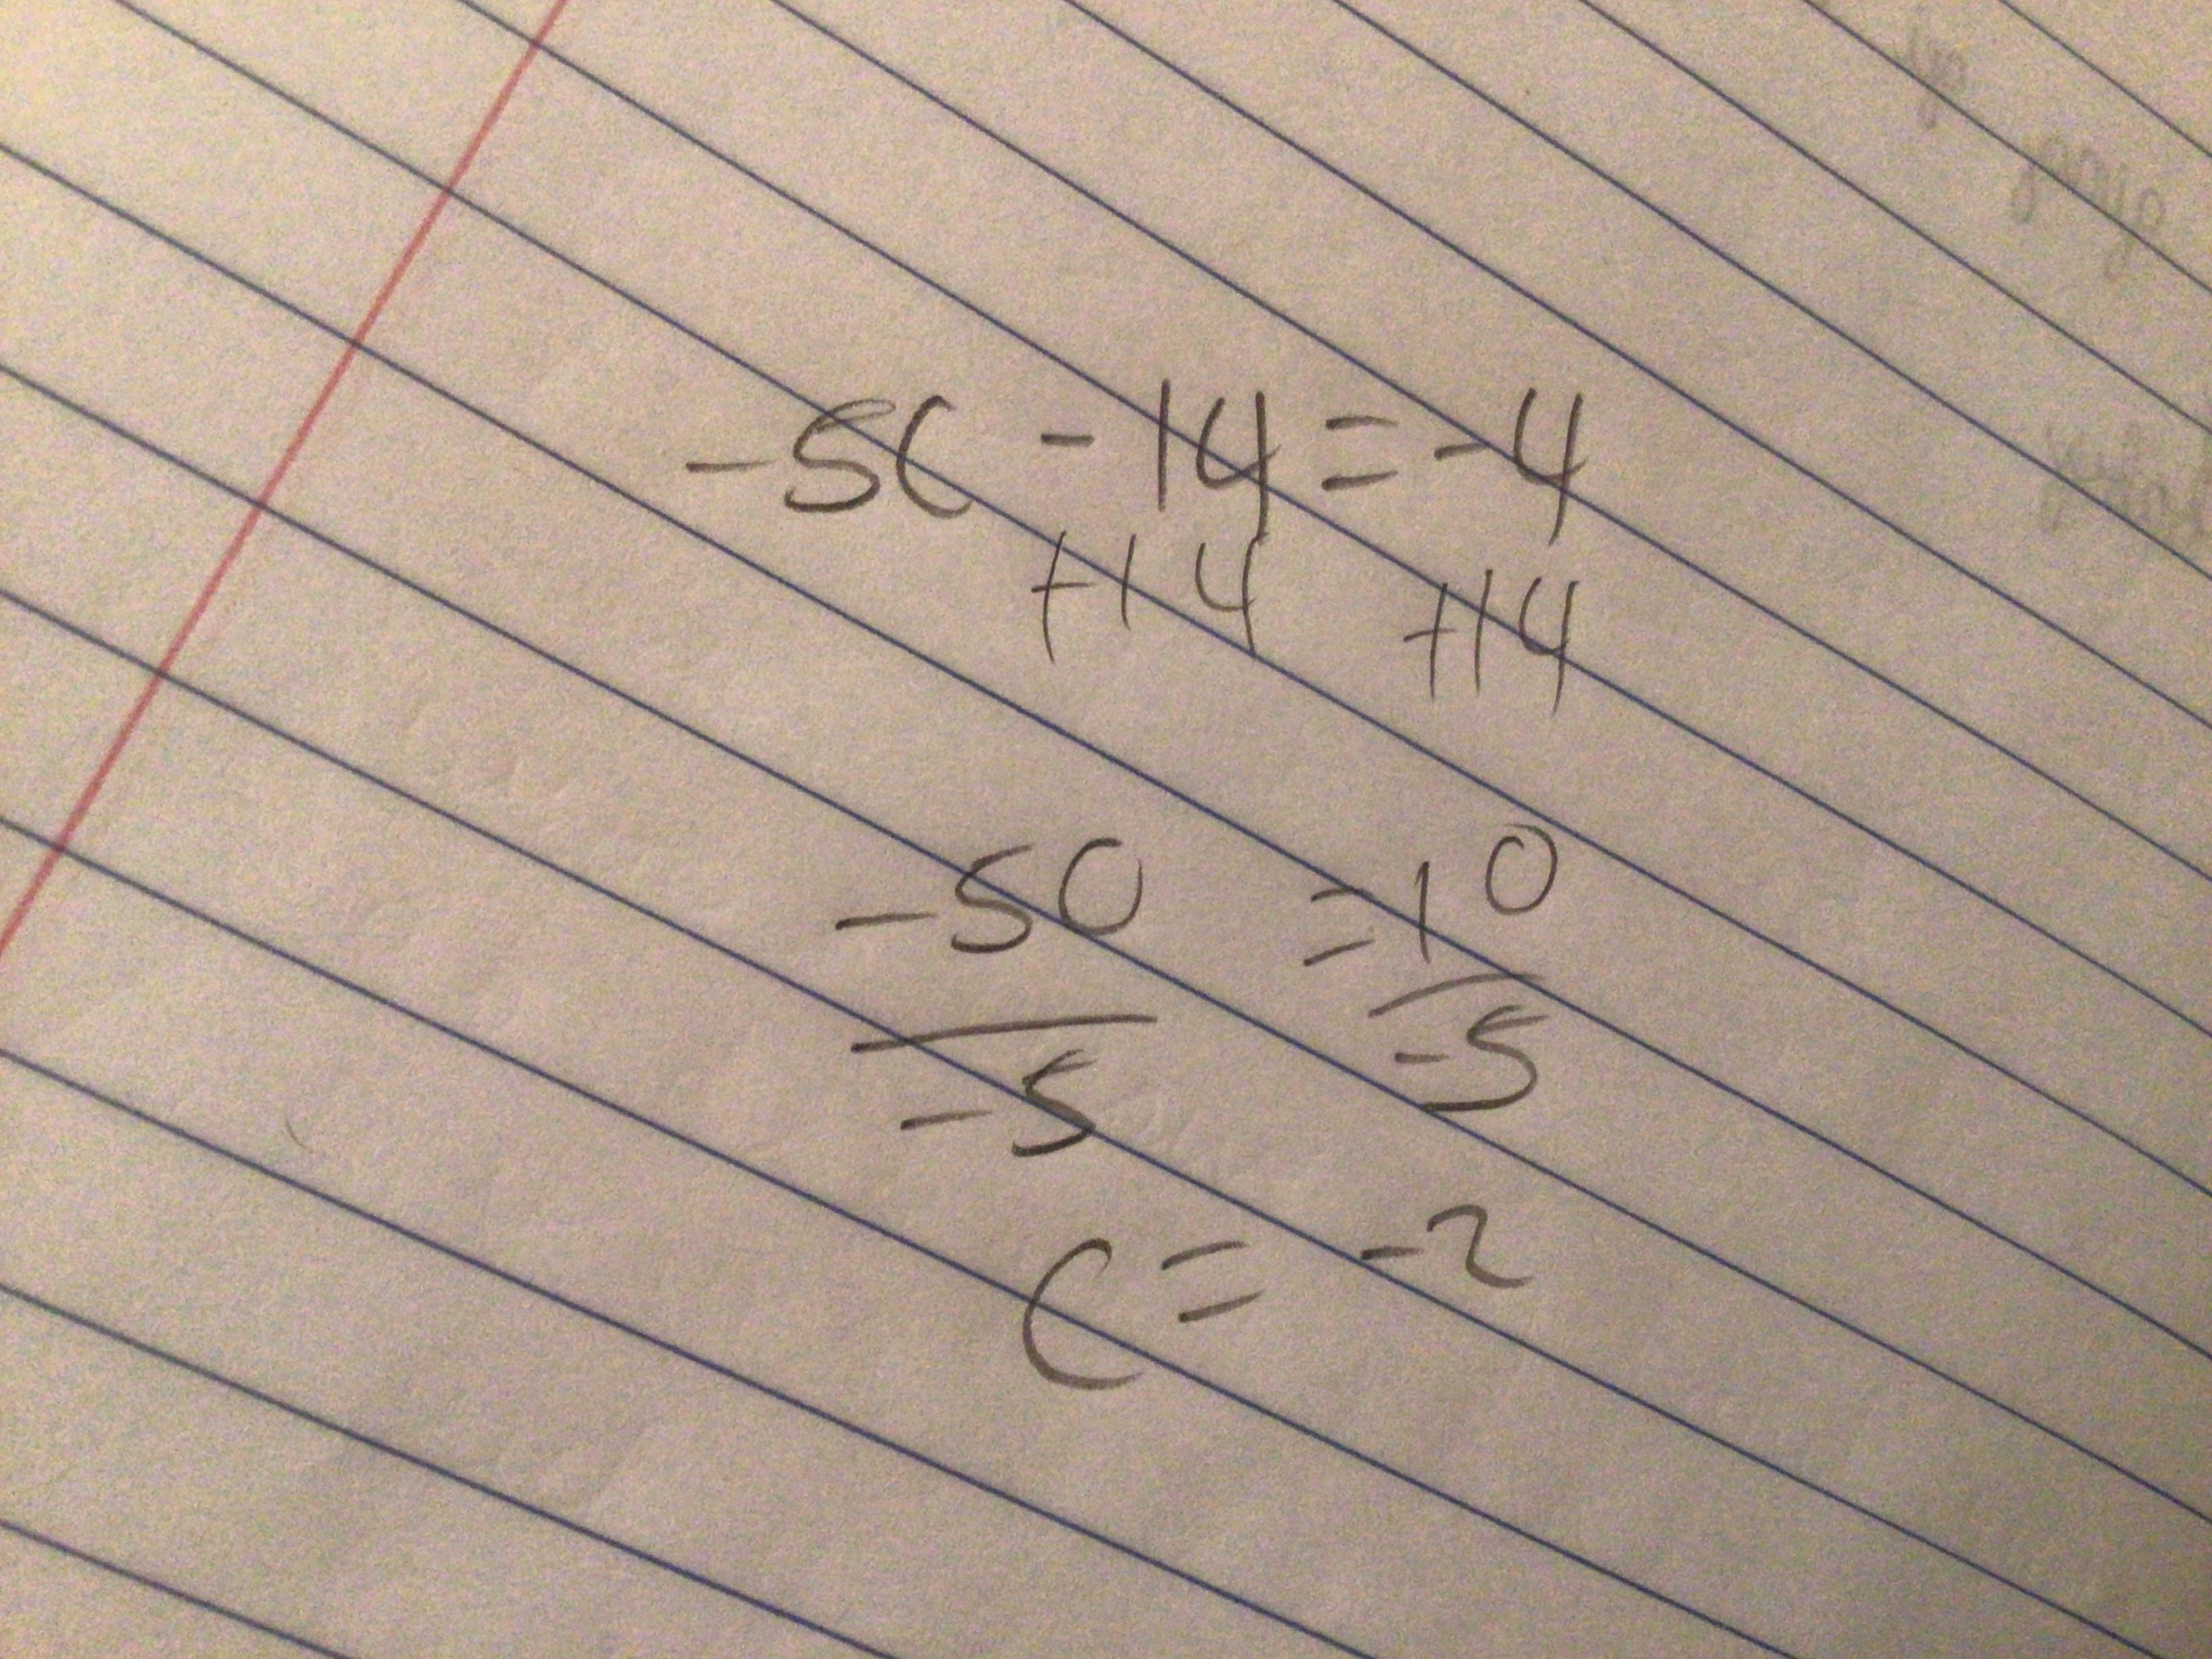 -5c - 14 = -4
+14 +14
-5c = 10
-5 -5
c = -2